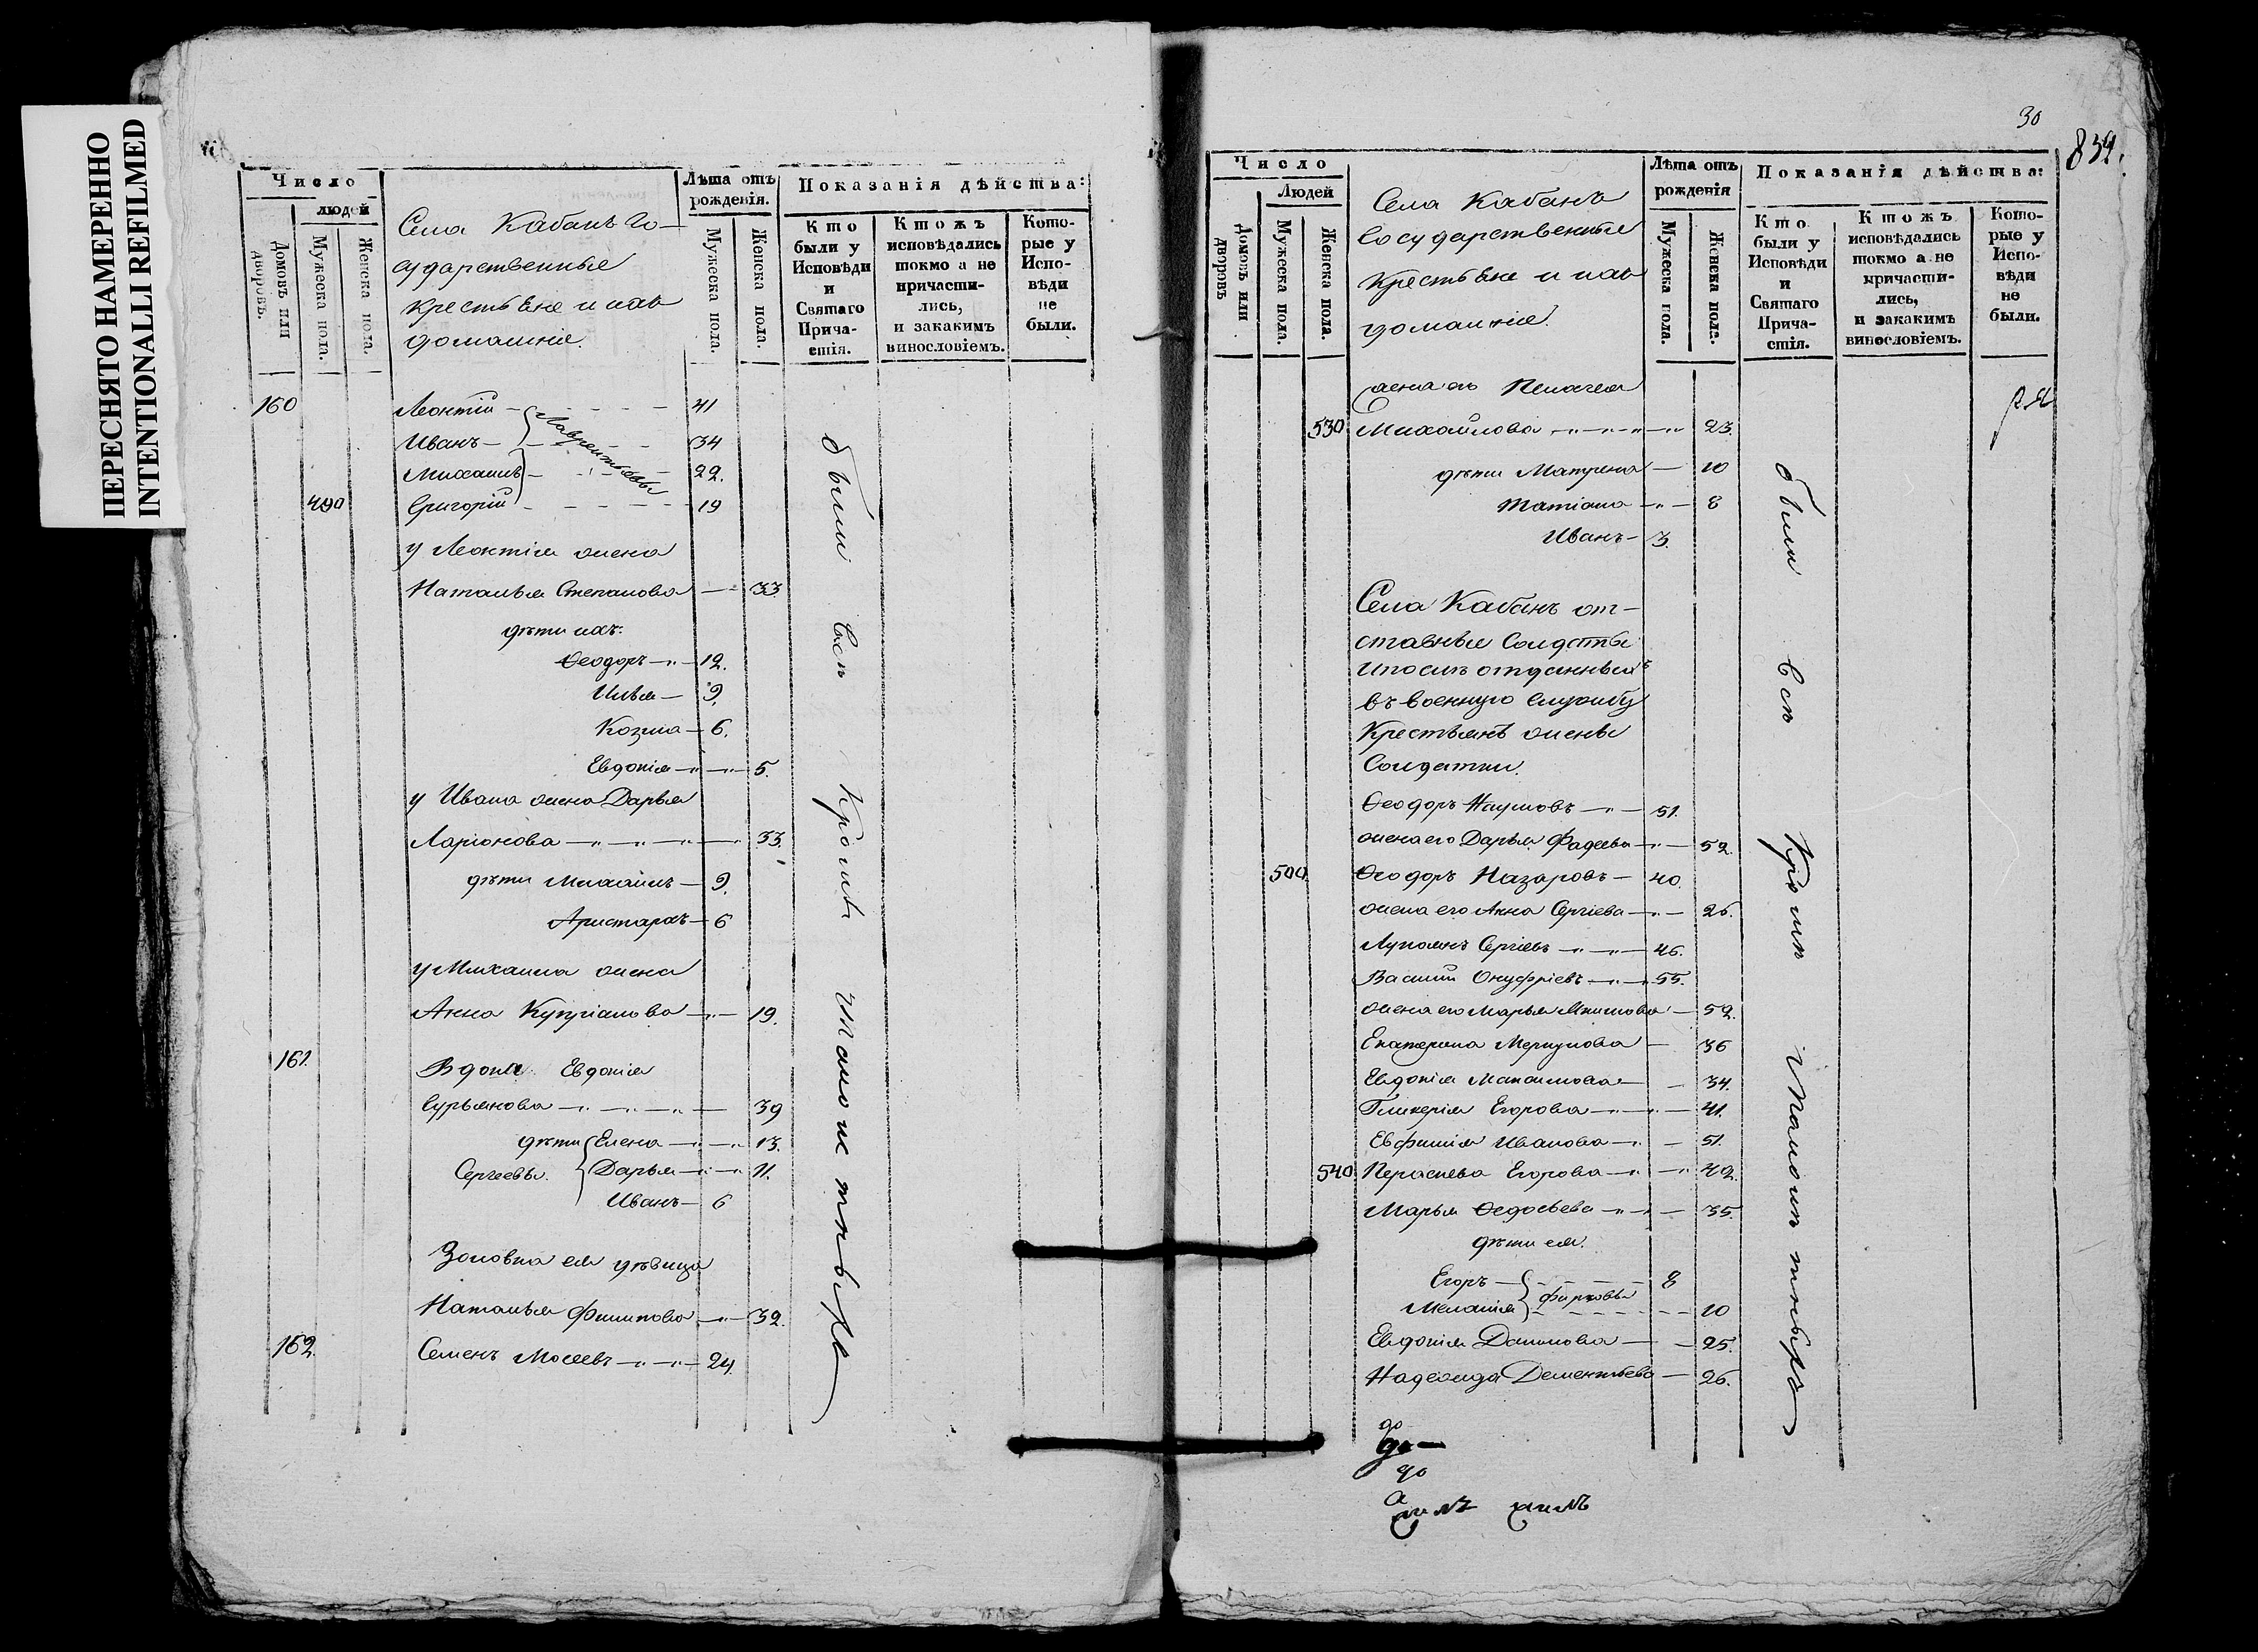 ПЕРЕСНЯТО НАМЕРЕННО
INTENTIONALLI REFILMED
Число
людей
Домовъ или дворовъ.
Мужеска пола.
Женска пола.
Села Кабанъ Го-
сударственные
крестьяне и ихъ
домашніе.
Лѣта отъ рожденія.
Мужеска пола.
Женска пола.
Показанія дѣйства:
Кто были у Исповѣди и Святаго Прича-стія.
Ктожъ исповѣдались токмо а не причасти-лись, и закакимъ винословіемъ.
Кото-рые у Испо-вѣди не были.
160 Леонтій 41
Иванъ 34
Лаврентьевы
Михаилъ 22.
490 Григорій 19
у Леонтія жена
Наталья Степанова 33.
дѣти ихъ:
Ѳеодоръ 12.
Илья 9.
Козма 6.
Евдокія 5.
у Ивана жена Дарья
Ларіонова 33.
дѣти Михаилъ 9.
Аристархъ 6
у Михаила жена
Анна Купріанова 19.
161. Вдова Евдокія
Гурьянова 39
дѣти Елена 13.
Сергеевы. Дарья 11.
Иванъ 6
Золовка ея дѣвица
Наталья Филипова 32.
162. Семенъ Мосеевъ 24.
были всѣ кромѣ
30
839.
Число
Людей
Домовъ или дворовъ
Мужеска пола.
Женска пола.
Села Кабанъ
Государственные
крестьяне и ихъ
домашніе.
Лѣта отъ рожденія
Мужеска пола.
Женска пола.
Показанія дѣйства:
Кто были у Исповѣди и Святаго Прича-стія.
Ктожъ исповѣдались токмо а не причасти-лись, и закакимъ винословіемъ.
Кото-рые у Испо-вѣди не были.
жена его Пелагея
530 Михайлова 23.
дѣти Матрена 10
Татіана 8
Иванъ 3.
Села Кабанъ от-
ставные Солдаты
въ военную службу
Крестьянъ жены
Солдатки.
Ѳеодоръ Наумовъ 51.
жена его Дарья Фадеева 52.
500. Ѳеодоръ Назаровъ 40.
жена его Анна Сергіева 26.
Лукоянъ Сергіевъ 46.
Василій Онуфріевъ 55.
жена его Марья 52.
Екатерина Меркулова 36
Евдокія Максимова 34.
Гликерія Егорова 41.
Евфимія Иванова 51.
540 Параскева Егорова 42.
Марья Ѳедосѣева 35.
дѣти ея.
Егоръ 8
Меланія 10
Евдокія Данилова 25.
Надежда Дементьева 26.
были всѣ кромѣ
до
до
до